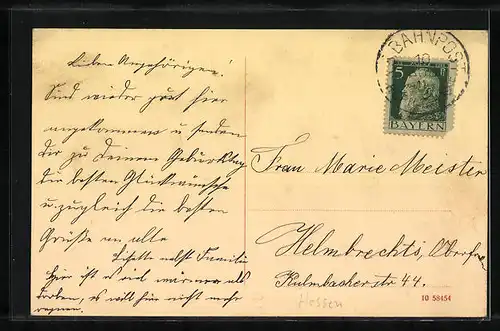 Liebe Angehörigen!
Sind wieder gut hier
angekommen u. senden
dir zu deinem Geburtstag
die besten Glückwünsche
u. zugleich die besten
Grüße an alle
nebst Familie
Hier ist es viel wärmer als
droben, es will hier nicht mehr
regnen.
BAHNPOST
10
5
BAYERN
Frau Marie Meister
Helmbrechts, Oberfr.
Kulmbacherstr 44.
Hessen
10 58454